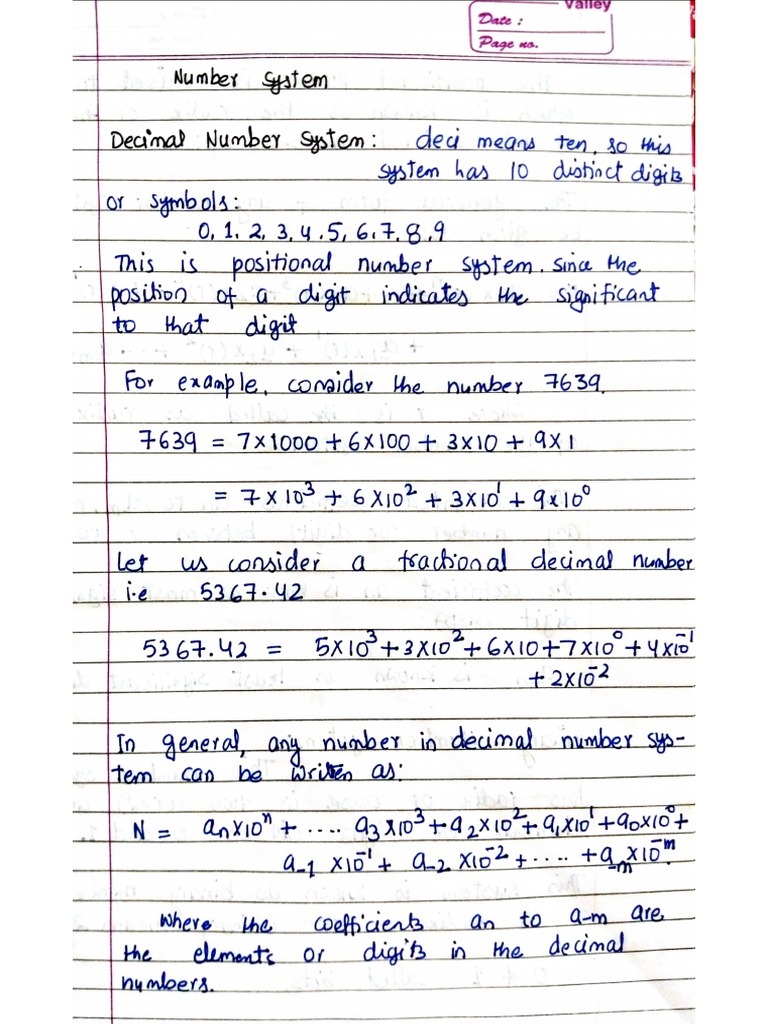 Valley
Date :
Page no.
Number System
Decimal Number System: deci means ten, so this
system has 10 distinct digits
or symbols:
0, 1, 2, 3, 4, 5, 6, 7, 8, 9
This is positional number system. Since the
position of a digit indicates the significant
to that digit
For example, consider the number 7639.
7639 = 7×1000 + 6×100 + 3×10 + 9×1
= 7×10³ + 6×10² + 3×10¹ + 9×10⁰
Let us consider a fractional decimal number
i.e 5367.42
5367.42 = 5×10³+3×10²+6×10+7×10⁰+4×10⁻¹
+ 2×10⁻²
In general, any number in decimal number sys-
tem can be writen as:
N = aₙ×10ⁿ + .... a₃×10³+a₂×10²+a₁×10¹+a₀×10⁰+
a₋₁ ×10⁻¹ + a₋₂ ×10⁻² + .... + a₋ₘ×10⁻ᵐ.
Where the coefficients an to a-m are
the elements or digits in the decimal
numbers.